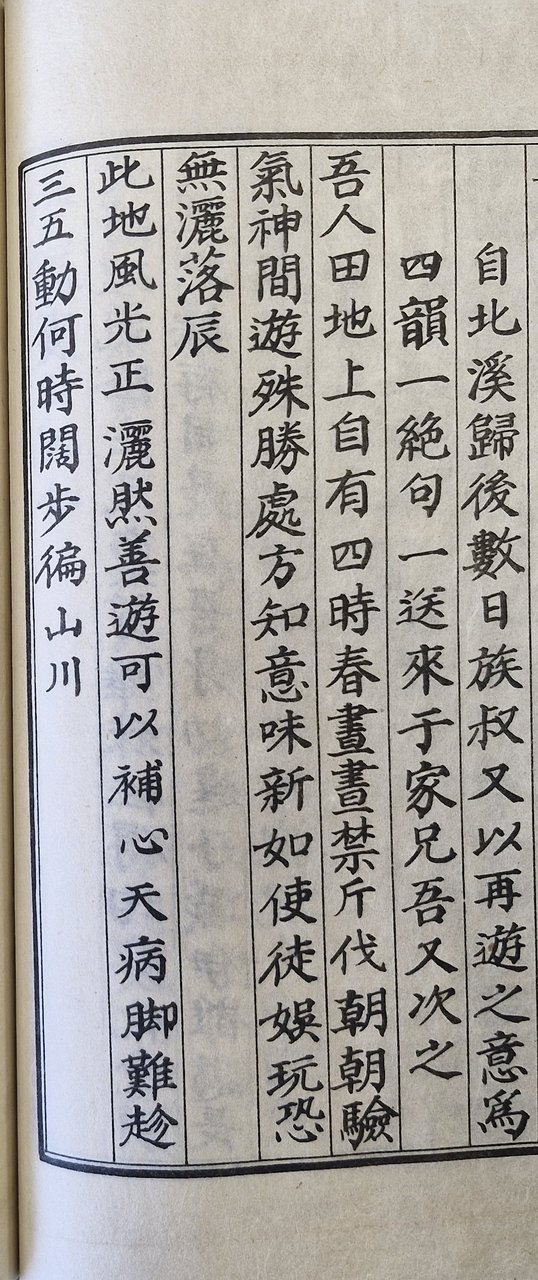 自北溪歸後數日族叔又以再遊之意爲
四韻一絶句一送來于家兄吾又次之
吾人田地上自有四時春晝晝禁斤伐朝朝驗
氣神間遊殊勝處方知意味新如使徒娛玩恐
無灑落辰
此地風光正灑然善遊可以補心天病脚難趁
三五動何時闊步徧山川